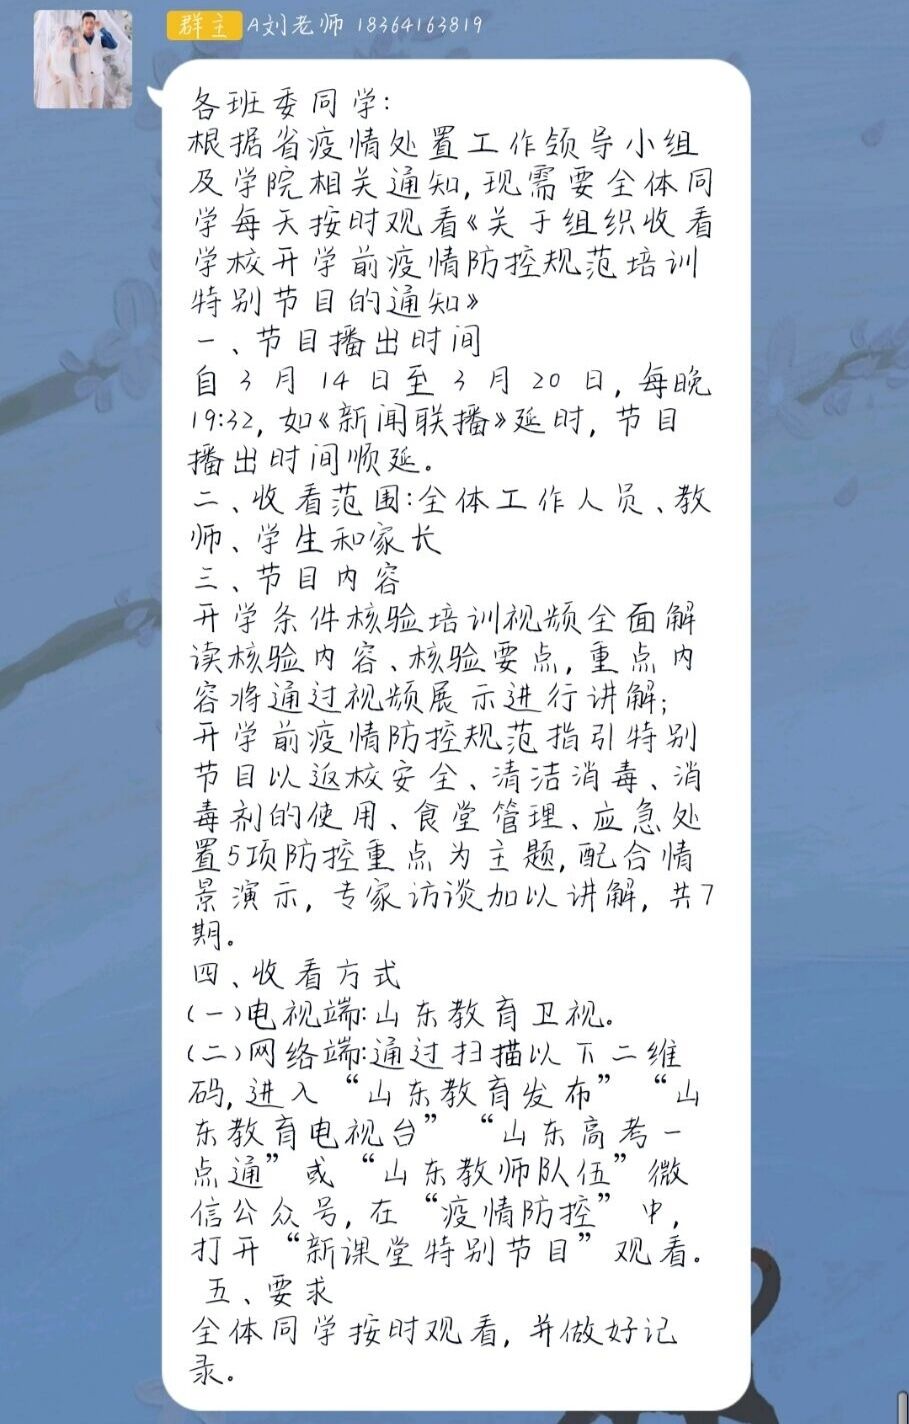 群主 A刘老师 18364163819
各班委同学:
根据省疫情处置工作领导小组
及学院相关通知,现需要全体同
学每天按时观看《关于组织收看
学校开学前疫情防控规范培训
特别节目的通知》
一、节目播出时间
自3月14日至3月20日,每晚
19:32,如《新闻联播》延时,节目
播出时间顺延。
二、收看范围:全体工作人员、教
师、学生和家长
三、节目内容
开学条件核验培训视频全面解
读核验内容、核验要点,重点内
容将通过视频展示进行讲解;
开学前疫情防控规范指引特别
节目以返校安全、清洁消毒、消
毒剂的使用、食堂管理、应急处
置5项防控重点为主题,配合情
景演示,专家访谈加以讲解,共7
期。
四、收看方式
(一)电视端:山东教育卫视。
(二)网络端:通过扫描以下二维
码,进入“山东教育发布”“山
东教育电视台”“山东高考一
点通”或“山东教师队伍”微
信公众号,在“疫情防控”中,
打开“新课堂特别节目”观看。
五、要求
全体同学按时观看,并做好记
录。